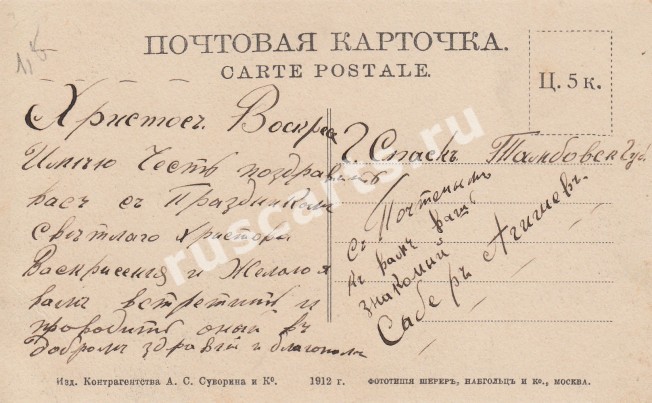 1,5
ПОЧТОВАЯ КАРТОЧКА.
CARTE POSTALE.
Ц. 5 к.
Христосъ Воскресе
Имѣю Честь поздравить
васъ съ Праздникомъ
свѣтлаго Христова
Воскрисения и Желаю я
вамъ встретить и
проводить оный въ
добромъ здравіи и благополу
Г. Спаскъ Тамбовск Губ
Съ Почтенымъ
къ вамъ вашъ
знакомый
Саберъ Агишевъ.
ruscarts.ru
Изд. Контрагентства А. С. Суворина и Ко. 1912 г. ФОТОТИПІЯ ШЕРЕРЪ, НАБГОЛЬЦЪ И Ко., МОСКВА.